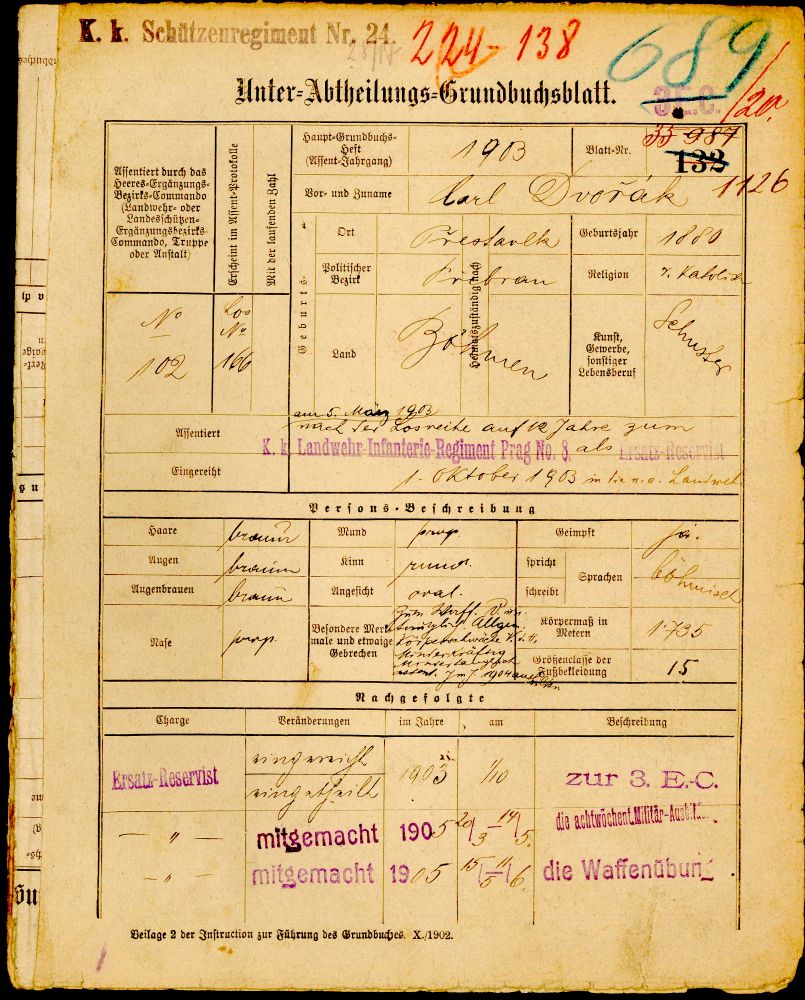 K. k. Schützenregiment Nr. 24.
224 - 138
689
/20
Unter-Abtheilungs-Grundbuchsblatt.
3 E.C.
Assentiert durch das
Heeres-Ergänzungs-
Bezirks-Commando
(Landwehr- oder
Landesschützen-
Ergänzungsbezirks-
Commando, Truppe
oder Anstalt)
Erscheint im Assent-Protokolle
Mit der laufenden Zahl
Haupt-Grundbuchs-
Heft
(Assent-Jahrgang)
1903
Blatt-Nr.
35 987
132
1126
Vor- und Zuname
Carl Dvořák
Geburts-
Ort
Prestavlk
Geburtsjahr
1880
Politischer
Bezirk
Přibram
Heimatszuständig nach
Religion
r. katolisch
Land
Böhmen
Kunst,
Gewerbe,
sonstiger
Lebensberuf
Schuster
No
102
Los
No
166
Assentiert
am 5. März 1903
nach der Losreihe auf 12 Jahre zum
K. k. Landwehr-Infanterie-Regiment Prag No. 8. als Ersatz-Reservist
Eingereiht
1. Oktober 1903 in die n.a. Landweh
Persons-Beschreibung
Haare braun
Mund prop.
Geimpft ja.
Augen braun
Kinn rund.
spricht
schreibt
Sprachen
böhmisch
Augenbrauen braun
Angesicht oval.
Nase prop.
Besondere Merk-
male und etwaige
Gebrechen
Zum Waff. D.
Allgem.
Körperschwäche
Minderkräftig
Mindertauglich
assent. Im J. 1904
Körpermaß in
Metern
1·735
Größenclasse der
Fußbekleidung
15
Nachgefolgte
Charge Veränderungen im Jahre am Beschreibung
Ersatz-Reservist
eingereicht
eingetheilt
1903 1/10 zur 3. E.-C.
— " — mitgemacht 1905 20/3 — 14/5. die achtwöchent. Militär-Ausbild
— " — mitgemacht 1905 15/5 — 11/6. die Waffenübung
Beilage 2 der Instruction zur Führung des Grundbuches. X./1902.